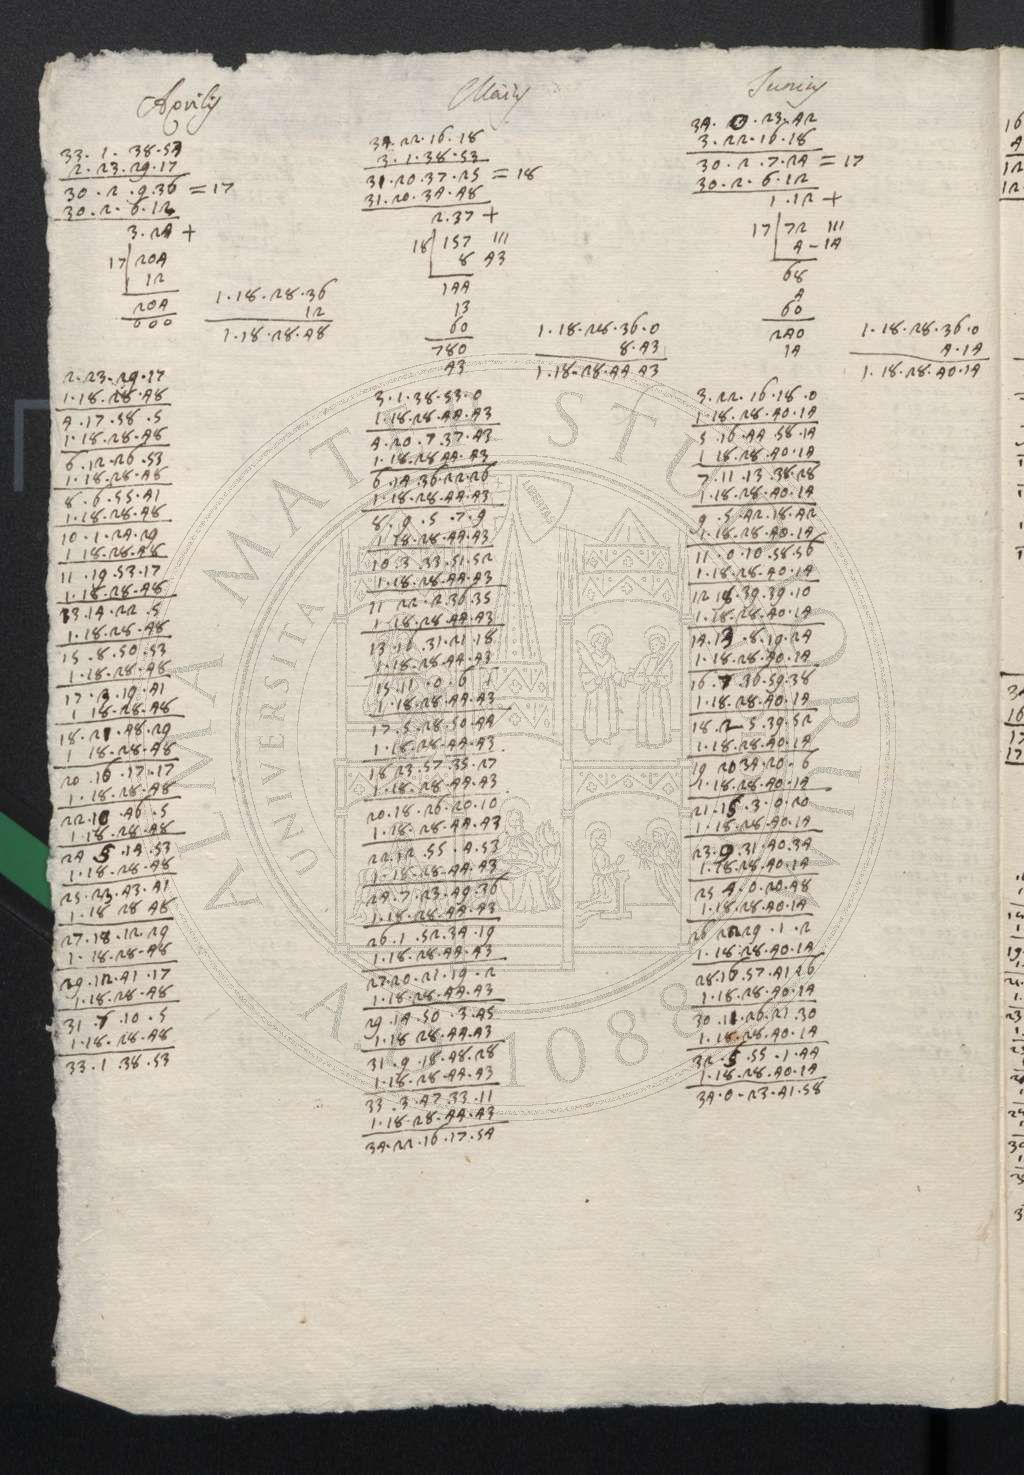 Aprilis
33. 1. 38. 54
2. 23. 29. 17
30. 2. 9. 36 = 17
30. 2. 6. 12
3. 24 +
17 204
12
204
000
1. 18. 28. 36
12
1. 18. 28. 48
2. 23. 29. 17
1. 18. 28. 48
4. 17. 58. 5
1. 18. 28. 48
6. 12. 26. 53
1. 18. 28. 48
8. 6. 55. 41
1. 18. 28. 48
10. 1. 24. 29
1 18. 28. 48
11. 19. 53. 17
1. 18. 28. 48
13. 14. 22. 5
1. 18. 28. 48
15. 8. 50. 53
1. 18. 28. 48
17. 3. 19. 41
1 18. 28. 48
18. 21. 48. 29
1 18. 28. 48
20. 16. 17. 17
1. 18. 28. 48
22. 10. 46. 5
1. 18. 28. 48
24 5. 14. 53
1. 18. 28. 48
25. 23. 43. 41
1. 18 28 48
27. 18. 12. 29
1. 18. 28. 48
29. 12. 41. 17
1. 18. 28. 48
31. 7. 10. 5
1. 18. 28. 48
33. 1. 38. 53
Maius
34. 22. 16. 18
3. 1. 38. 53
31. 20. 37. 25 = 18
31. 20. 34. 48
2. 37 +
18 157 III
8 43
144
13
60
780
43
1. 18. 28. 36. 0
8. 43
1. 18. 28. 44. 43
3. 1. 38. 53. 0
1. 18. 28. 44. 43
4. 20. 7. 37. 43
1. 18. 28. 44. 43
6. 14. 36. 22. 26
1. 18. 28. 44. 43
8. 9. 5. 7. 9
1 18. 28. 44. 43
10. 3. 33. 51. 52
1. 18. 28. 44. 43
11 22. 2. 36. 35
1. 18. 28. 44. 43
13. 16. 31. 21. 18
1. 18. 28. 44. 43
15. 11. 0. 6. 1
1. 18. 28. 44. 43
17. 5. 28. 50. 44
1. 18. 28. 44. 43
18 23. 57. 35. 27
1. 18. 28. 44. 43
20. 18. 26. 20. 10
1. 18. 28. 44. 43
22. 12. 55. 4. 53
1. 18. 28. 44. 43
24. 7. 23. 49. 36
1. 18. 28. 44. 43
26. 1. 52. 34. 19
1. 18. 28. 44. 43
27. 20. 21. 19. 2
1. 18. 28. 44. 43
29. 14. 50. 3. 45
1. 18 28. 44. 43
31. 9. 18. 48. 28
1. 18. 28. 44. 43
33. 3. 47. 33. 11
1. 18. 28. 44. 43
34. 22. 16. 17. 54
Junius
34. 0. 23. 42
3. 22. 16. 18
30. 2. 7. 24 = 17
30. 2. 6. 12
1. 12 +
17 72 III
4 - 14
68
4
60
240
14
1. 18. 28. 36. 0
4. 14
1. 18. 28. 40. 14
3. 22. 16. 18. 0
1. 18. 28. 40. 14
5. 16. 44. 58. 14
1 18. 28. 40. 14
7. 11. 13. 38. 28
1. 18. 28. 40. 14
9. 5. 42. 18. 42
1. 18. 28. 40. 14
11. 0. 10. 58. 56
1. 18. 28. 40. 14
12 18. 39. 39. 10
1. 18. 28. 40. 14
14. 13. 8. 19. 24
1. 18. 28. 40. 14
16. 7. 36. 59. 38
1. 18. 28. 40. 14
18. 2. 5. 39. 52
1. 18. 28. 40. 14
19 20 34. 20. 6
1. 18. 28. 40. 14
21. 15. 3. 0. 20
1. 18. 28. 40. 14
23. 9. 31. 40. 34
1. 18. 28. 40. 14
25 4. 0. 20. 48
1. 18. 28. 40. 14
26 22 29. 1. 2
1. 18. 28. 40. 14
28. 16. 57. 41 16
1. 18. 28. 40. 14
30. 11. 26. 21. 30
1. 18. 28. 40. 14
32. 5. 55. 1. 44
1. 18. 28. 40. 14
34. 0. 23. 41. 58
ALMA MATER STUDIORUM
UNIVERSITA
A.D. 1088
LIBERTAS